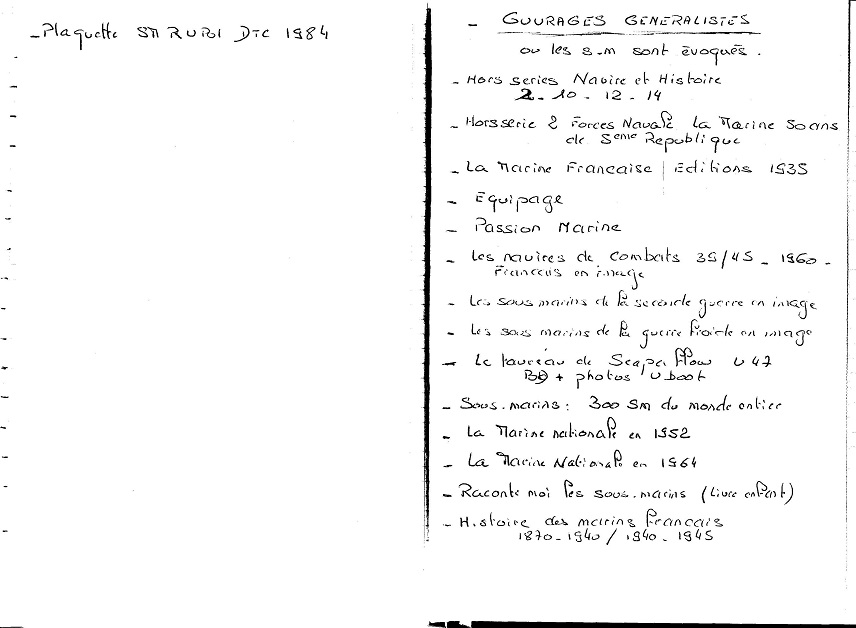 - Plaquette SM RUBI DTC 1984
- OUVRAGES GENERALISTES
ou les s-m sont évoqués.
- Hors series Navire et Histoire
2 - 10 - 12 - 14
- Hors serie 2 Forces Navale La Marine 50 ans
de 5eme Republique
- La Marine Francaise | Editions 1935
- Equipage
- Passion Marine
- Les navires de Combats 39/45 - 1960 -
Francais en image
- Les sous marins de la seconde guerre en image
- Les sous marins de la guerre froide en image
- Le taureau de Scapa flow U 47
BD + photos U boot
- Sous-marins : 300 sm du monde entier
- La Marine nationale en 1952
- La Marine Nationale en 1964
- Raconte moi les sous-marins (Livre enfant)
- Histoire des marins francais
1870 - 1940 / 1940 - 1945